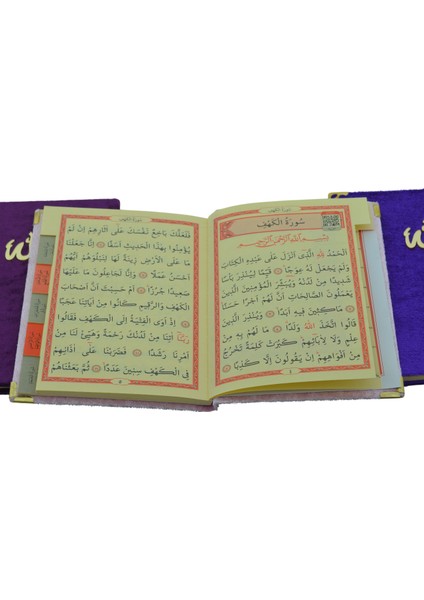 سُورَةُ الْكَهْفِ
بِسْمِ اللّٰهِ الرَّحْمٰنِ الرَّحِيمِ
اَلْحَمْدُ لِلّٰهِ الَّذٖى اَنْزَلَ عَلٰى عَبْدِهِ الْكِتَابَ
وَلَمْ يَجْعَلْ لَهُ عِوَجًا ۞ قَيِّمًا لِيُنْذِرَ بَاْسًا
شَدٖيدًا مِنْ لَدُنْهُ وَيُبَشِّرَ الْمُؤْمِنٖينَ الَّذٖينَ
يَعْمَلُونَ الصَّالِحَاتِ اَنَّ لَهُمْ اَجْرًا حَسَنًا
۞ مَاكِثٖينَ فٖيهِ اَبَدًا ۞ وَيُنْذِرَ الَّذٖينَ
قَالُوا اتَّخَذَ اللّٰهُ وَلَدًا ۞ مَا لَهُمْ بِهٖ مِنْ
عِلْمٍ وَلَا لِاٰبَائِهِمْ كَبُرَتْ كَلِمَةً تَخْرُجُ
مِنْ اَفْوَاهِهِمْ اِنْ يَقُولُونَ اِلَّا كَذِبًا ۞
٤
سُورَةُ الْكَهْفِ
فَلَعَلَّكَ بَاخِعٌ نَفْسَكَ عَلٰى اٰثَارِهِمْ اِنْ لَمْ
يُؤْمِنُوا بِهٰذَا الْحَدٖيثِ اَسَفًا ۞ اِنَّا جَعَلْنَا
مَا عَلَى الْاَرْضِ زٖينَةً لَهَا لِنَبْلُوَهُمْ اَيُّهُمْ
اَحْسَنُ عَمَلًا ۞ وَاِنَّا لَجَاعِلُونَ مَا عَلَيْهَا
صَعٖيدًا جُرُزًا ۞ اَمْ حَسِبْتَ اَنَّ اَصْحَابَ
الْكَهْفِ وَالرَّقٖيمِ كَانُوا مِنْ اٰيَاتِنَا عَجَبًا
۞ اِذْ اَوَى الْفِتْيَةُ اِلَى الْكَهْفِ فَقَالُوا
رَبَّنَا اٰتِنَا مِنْ لَدُنْكَ رَحْمَةً وَهَيِّئْ لَنَا مِنْ
اَمْرِنَا رَشَدًا ۞ فَضَرَبْنَا عَلٰى اٰذَانِهِمْ
فِى الْكَهْفِ سِنٖينَ عَدَدًا ۞ ثُمَّ بَعَثْنَاهُمْ
٥